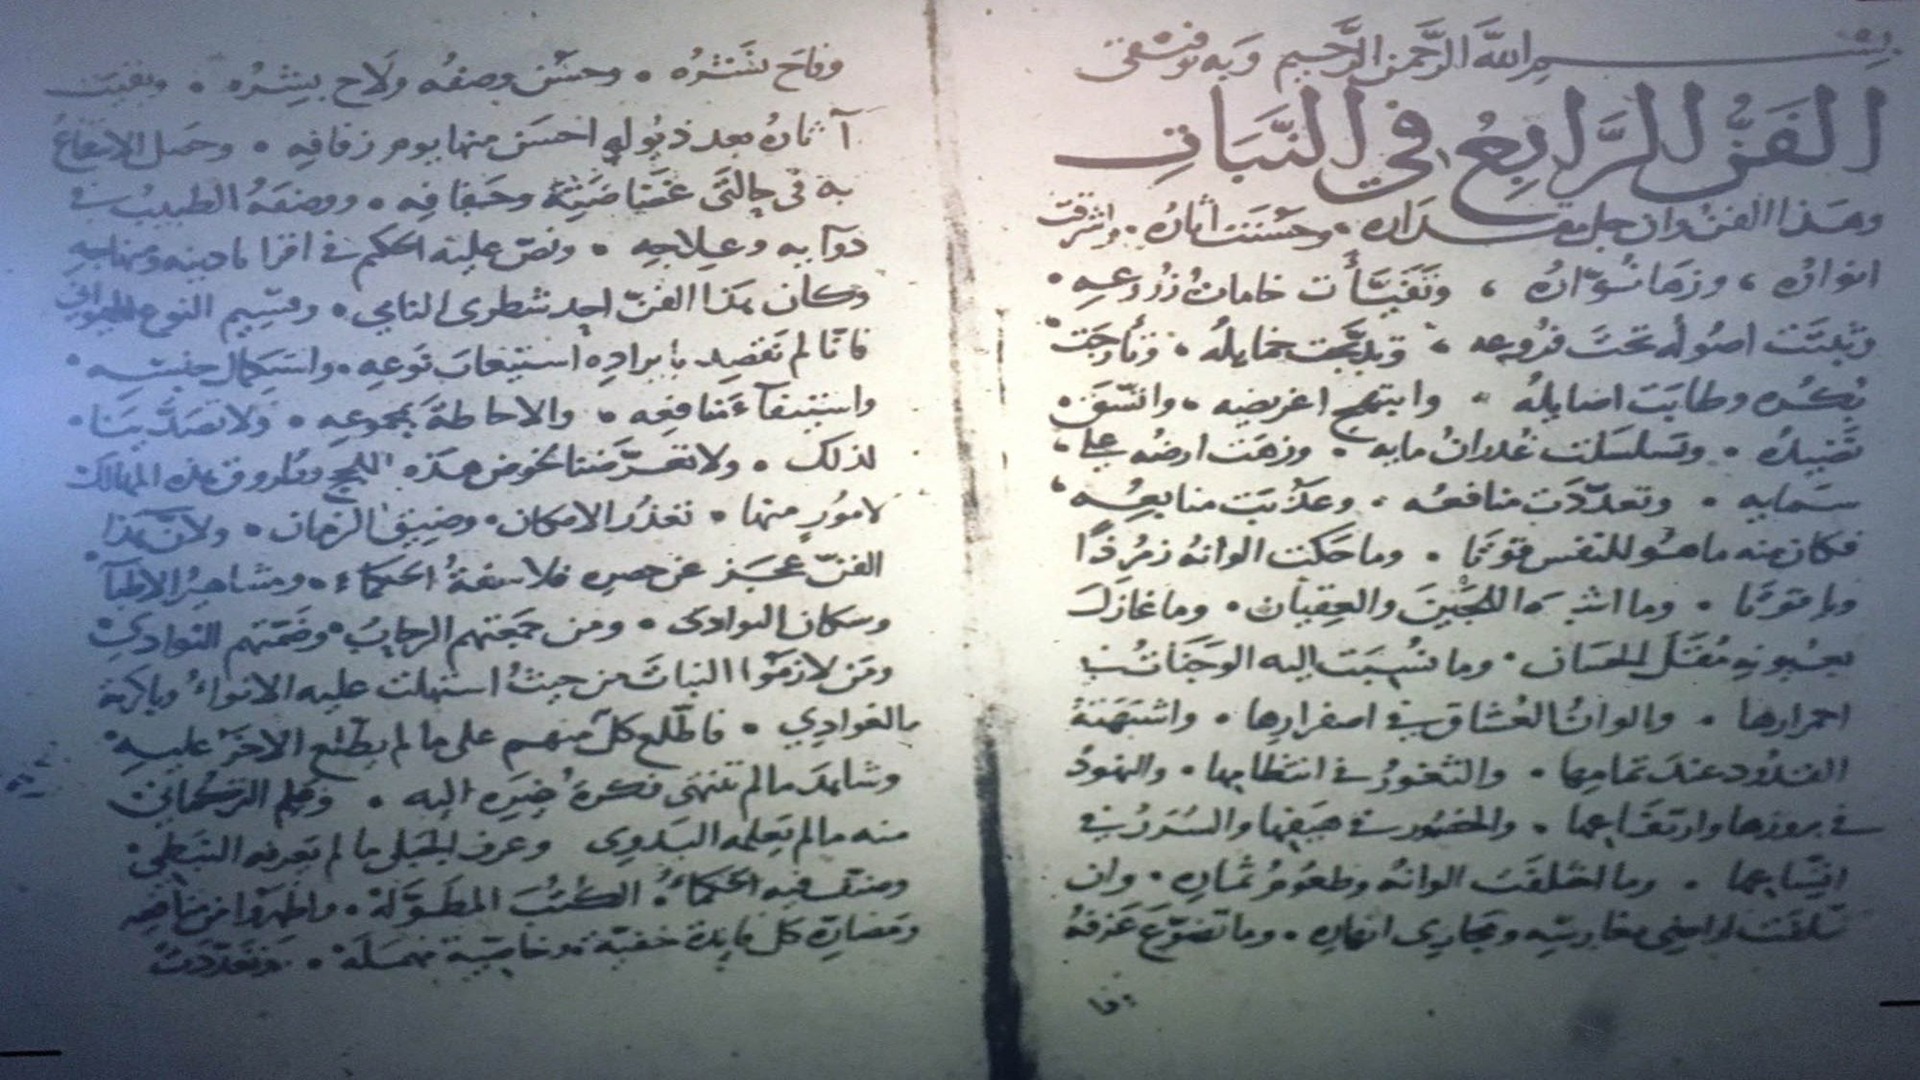 بسم الله الرحمن الرحيم وبه توفيقي
الفَنُّ الرَّابِعُ في النَّبَاتِ
وهذا الفن وان جل مقداره • وحسنت أثاره • واشرقت
انواره ، وزها نُوّاره ، وتَفَيَّأت خامات زروعه •
وثبتت اصوله تحت فروعه ، وتدبجت خمايله ، وتأرجت
بُكره وطابت اصايله • وابتهج اغريضه ، واتسق
نضيده • وتسلسلت غدران مايه • وزهت ارضه على
سمايه • وتعدّدت منافعه ، وعذبت منابعه ،
فكان منه ماهو للنفس قوتا • وما حكت الوانه زمرذا
وياقوتا • وما اشبه اللجين والعقيان • وما غازلت
بعيونه مُقَل الحسان • وما نُسِبَت اليه الوجنات في
احمرارها • والوان العشاق في اصفرارها • واشبهته
القدود عند تمامها • والثغور في انتظامها • والنهود
في بروزها وارتفاعها • والخصور في هيفها والسُرَر في
اتساعها • وما اختلفت الوانه وطعوم ثماره • وان
اراضى مغارسه ومجارى انهاره • وما تضوّع عَرفه
وفا
وفاح نشره • وحسن وصفه ولاح بشره • وبقيت
آثاره بعد ذبوله احسن منها يوم زفافه • وحصل الانتفاع
به في حالتى غضاضته وجفافه • ووصفه الطبيب في
دوآيه وعلاجه • ونصّ عليه الحكيم في اقراباذينه ومنهاجه
وكان هذا الفنّ احد شطرى النامي • وقسيم النوع
فانّا لم نقصد بايراده استيعاب نوعه • واستكمال جنسه •
واستيفآء منافعه • والاحاطة بمجموعه • ولا تصدّينا •
لذلك • ولا تعرّضنا لخوض هذه اللجج وطروق هذه المهالك
لامور منها • تعذر الامكان • وضيق الزمان • ولان هذا
الفنّ عجز عن حصره فلاسفة الحكماء • ومشاهير الاطبآ •
وسكان البوادى • ومن جمعتهم الرحاب • وضمّتهم النوادي
ومن لازموا النبات من حيث استهلت عليه الانواء وباكرته
الغوادي • فاطّلع كل منهم على ما لم يطلع الاخر عليه •
وشاهد ما لم تنته فكرة غيره اليه • وعلم التركمانى
منه مالم يعلمه البدوى وعرف الجبلى ما لم يعرفه النبطى •
وصنّف فيه الحكماء الكتب المطوّلة • واظهروا من منافعه
ومضارّه كل فايدة خفية • وخاصّية مهملة • وتعدّدت